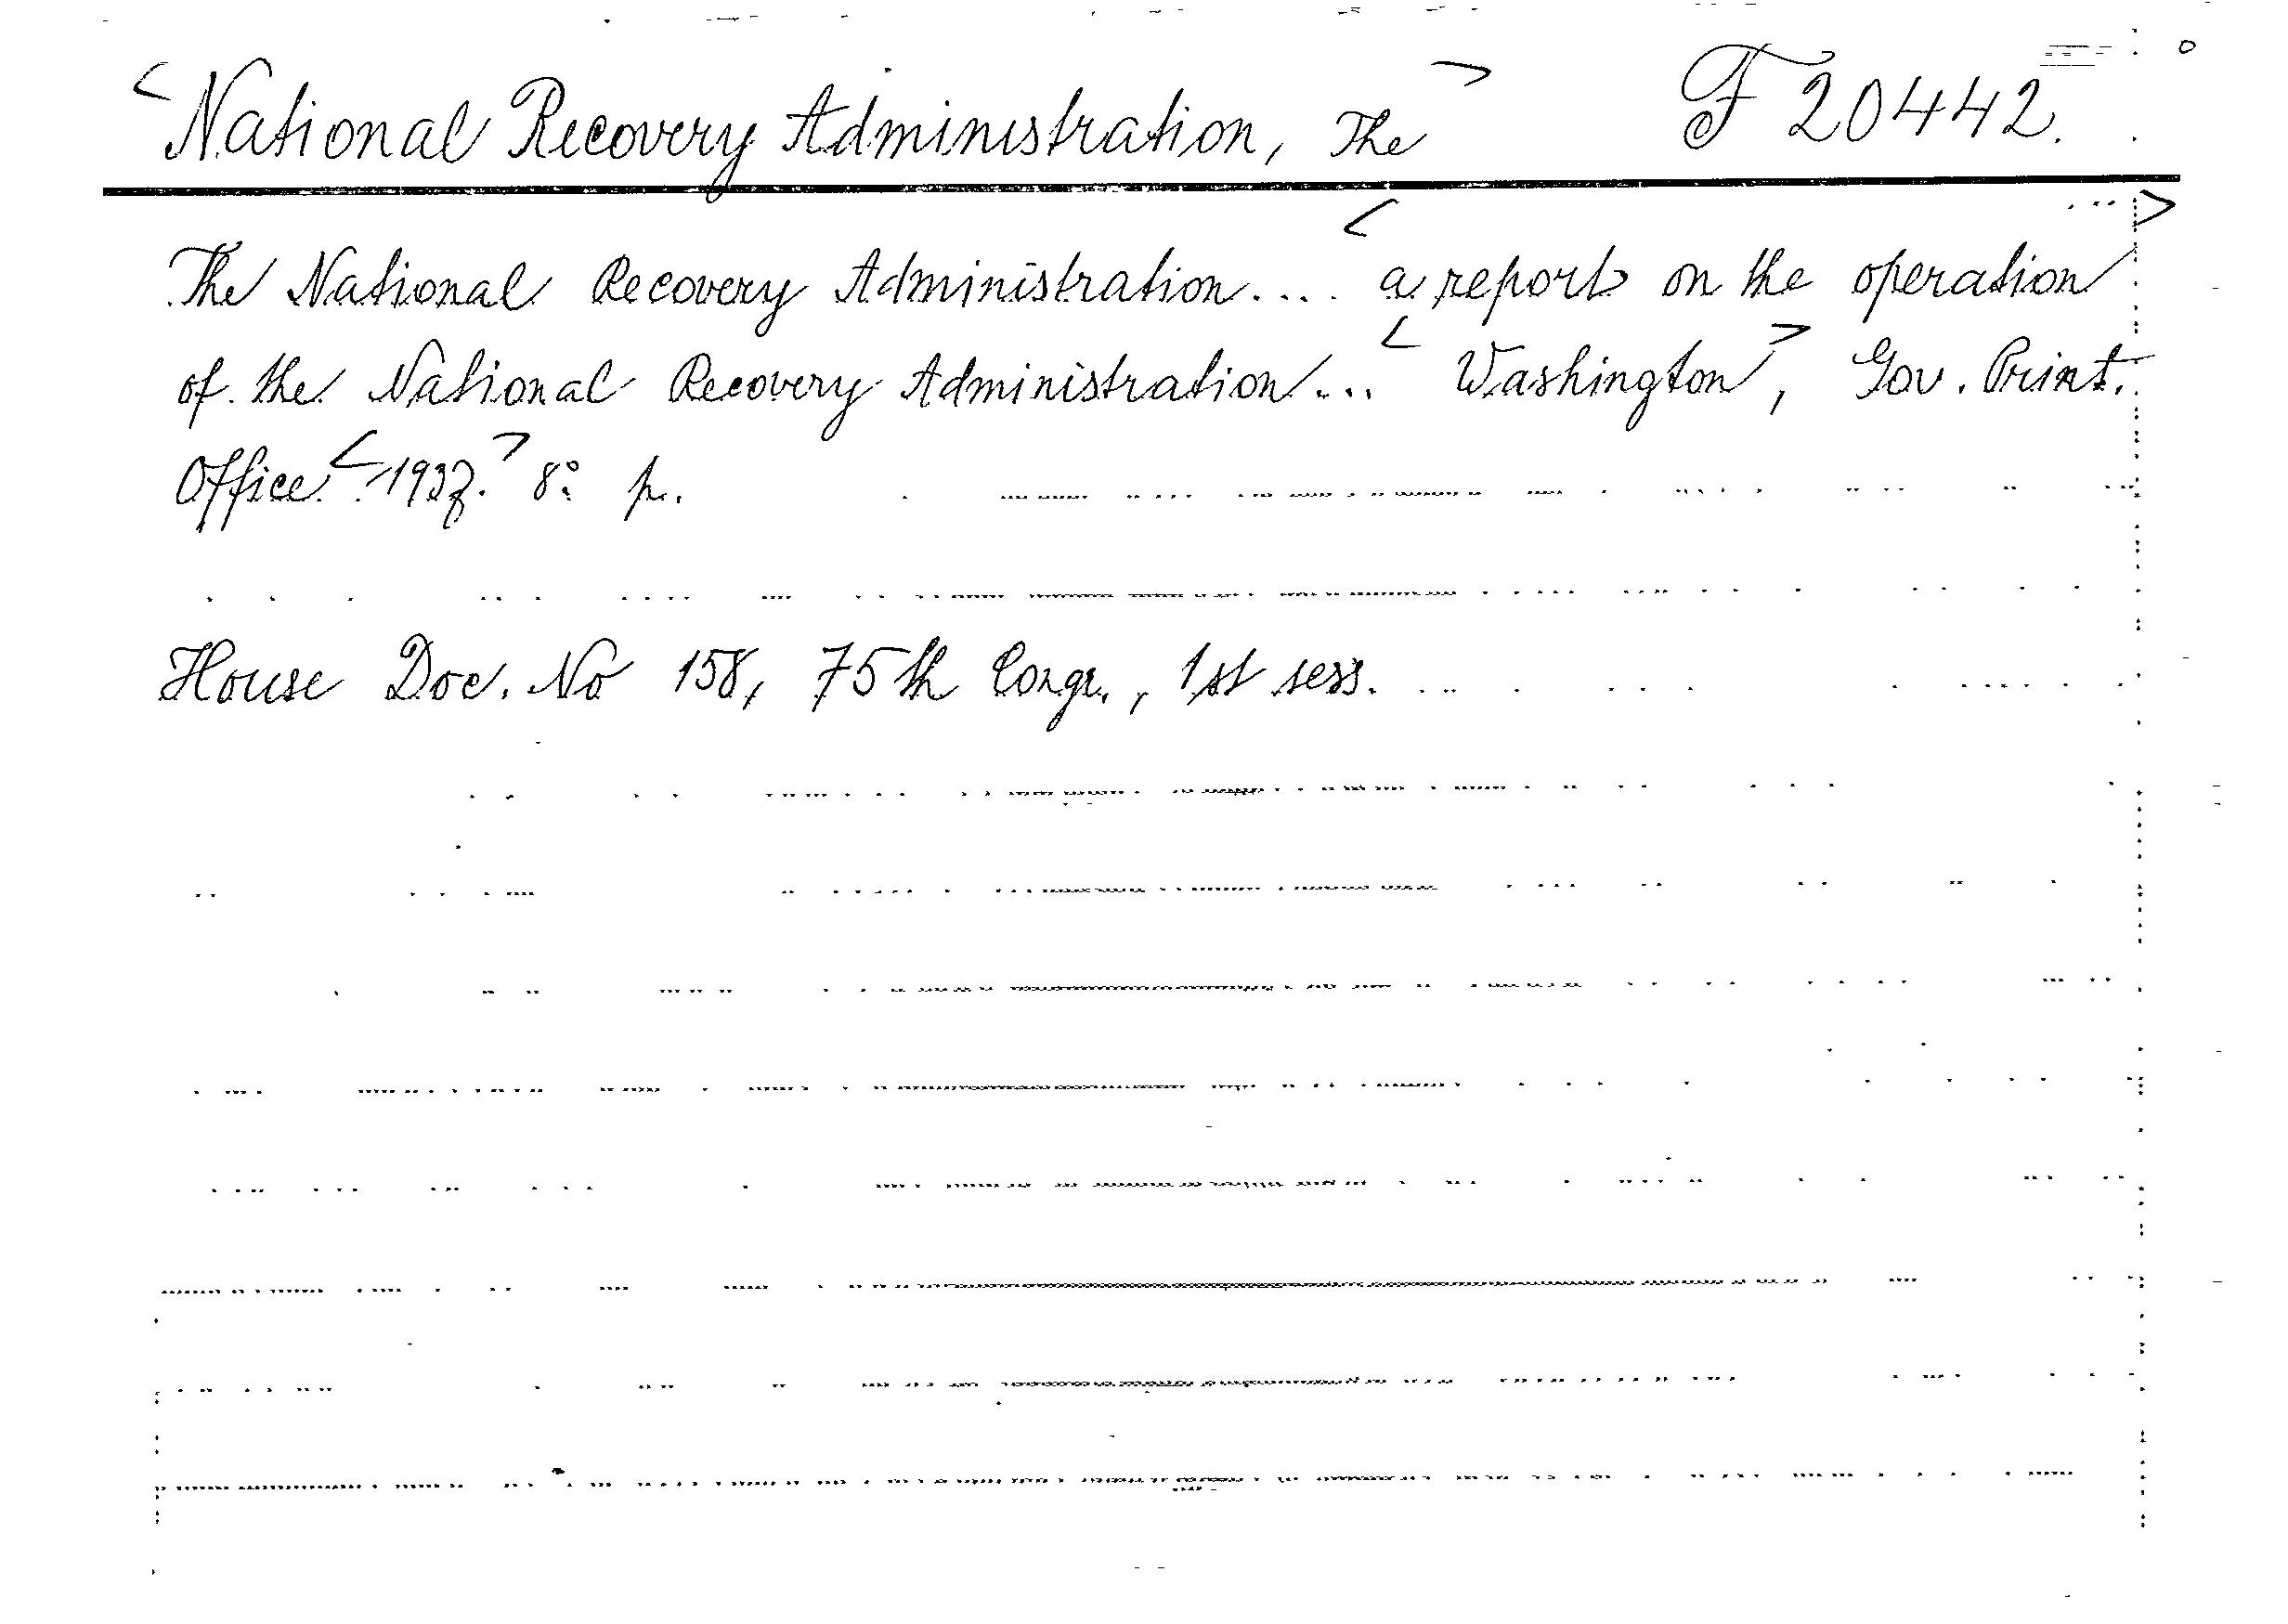 <National Recovery Administration, The> F 20442.
The National Recovery Administration.... <a report on the operation>
of the National Recovery Administration... <Washington>, Gov. Print.
Office <1937.> 8° p.
House Doc. No 158, 75th Congr., 1st sess.